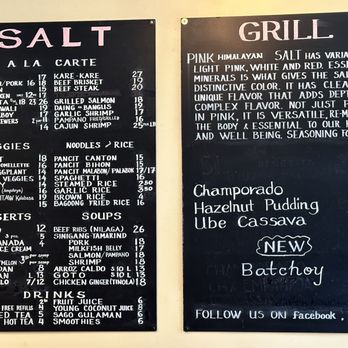 SALT
A LA CARTE
16 KARE-KARE 27
/PORK 16 BEEF BRISKET 20
17 BEEF STEAK 20
12/17
18 GRILLED SALMON 18
19 DAING = BANGUS 17
17 GARLIC SHRIMP 17
14 PAMPANO FRIED/GRILLED 16
14 CAJUN SHRIMP
GGIES NOODLES / RICE
PANCIT CANTON 15
OMELLETTE 16 PANCIT BIHON 15
EGGPLANT 14 PANCIT MALABON/PALABOK 17/17
VEGGIES 14 SPAGHETTI 14
STEAMED RICE 2.50
GARLIC RICE 4
BROWN RICE 4
BAGOONG FRIED RICE 16
ERTS SOUPS
12 BEEF RIBS (NILAGA) 26
SINIGANG TAMARIND
NADA PORK 18
CREAM MILKFISH BELLY 17
SALMON/PAMPANO 18
SHRIMP 18
ARROZ CALDO 13
GOTO 13
7/12 CHICKEN GINGER (TINOLA) 18
DRINKS
FRUIT JUICE 6
FREE REFILLS 4 YOUNG COCONUT JUICE 8
TEA 5 SAGO GULAMAN 5
HOT TEA 4 SMOOTHIES 8
GRILL
PINK HIMALAYAN SALT HAS VARIA
LIGHT PINK, WHITE AND RED. ESSEN
MINERALS IS WHAT GIVES THE SAL
DISTINCTIVE COLOR. IT HAS CLEAN
UNIQUE FLAVOR THAT ADDS DEPT
COMPLEX FLAVOR. NOT JUST P
IN PINK, IT IS VERSATILE, RE-M
THE BODY & ESSENTIAL TO OUR H
AND WELL BEING. SEASONING FO
Champorado
Hazelnut Pudding
Ube Cassava
NEW
Batchoy
FOLLOW US ON Facebook,